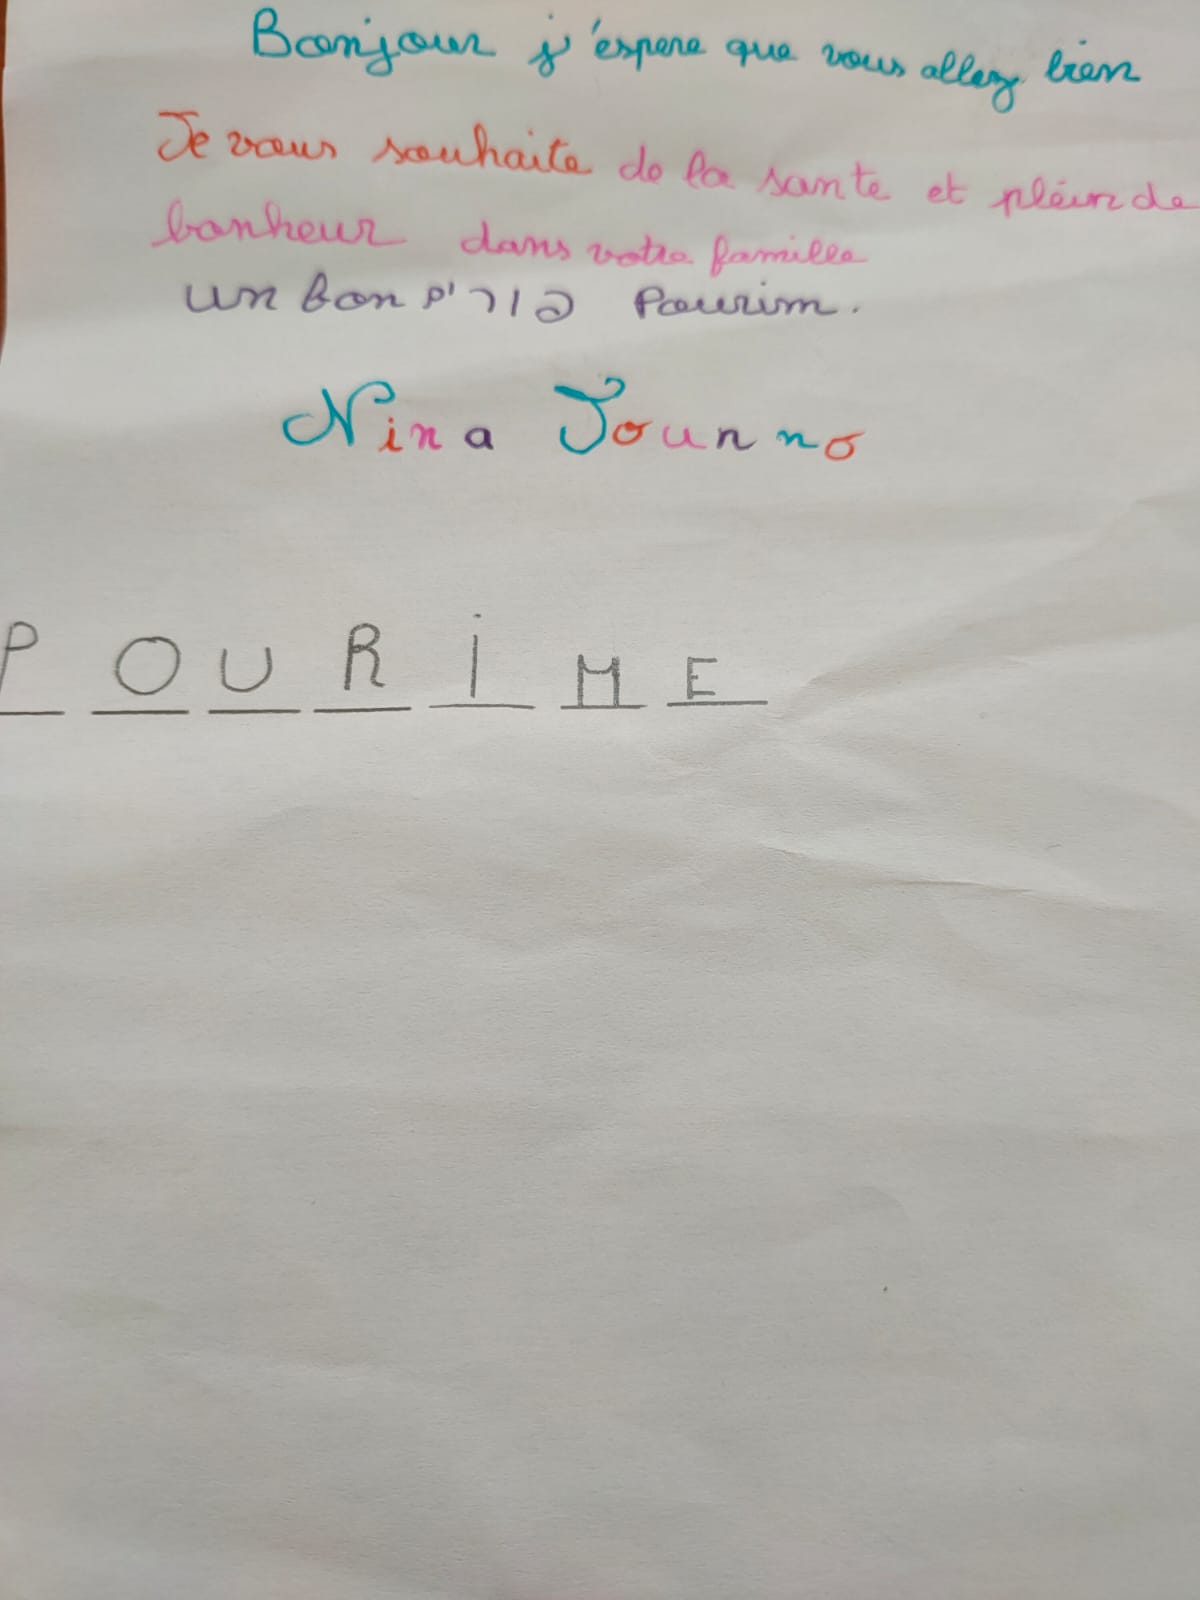 Bonjour j'espere que vous allez bien
Je vous souhaite de la sante et plein de
bonheur dans votre famille
un bon פורים Pourim.
Nina Jounno
P O U R I M E